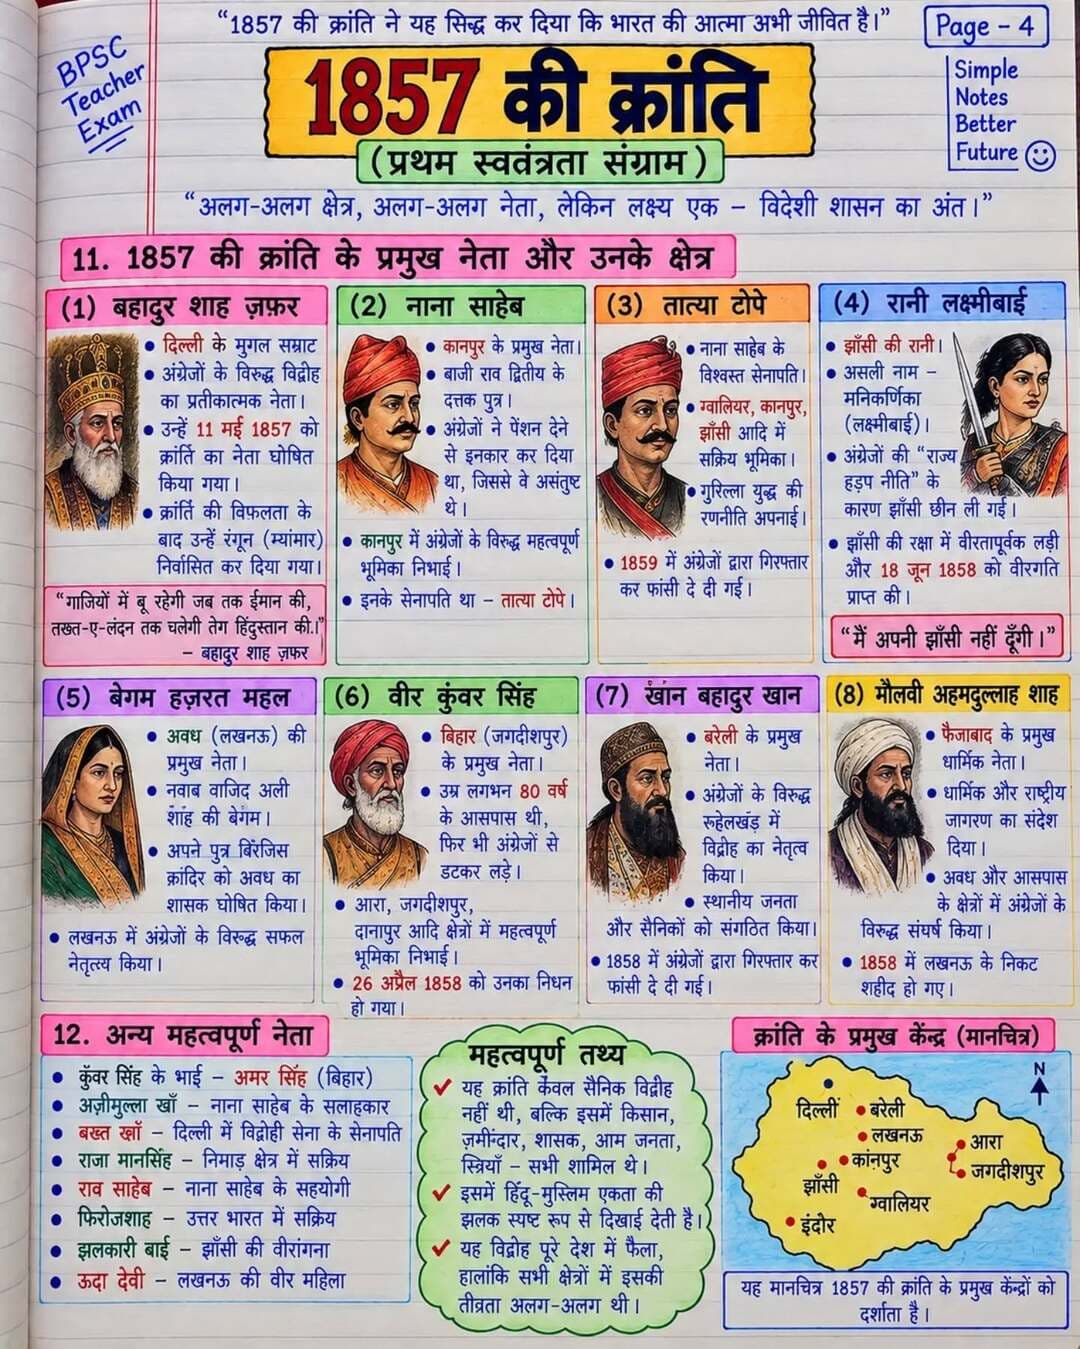 “1857 की क्रांति ने यह सिद्ध कर दिया कि भारत की आत्मा अभी जीवित है।”
Page – 4
BPSC
Teacher
Exam
1857 की क्रांति
(प्रथम स्वतंत्रता संग्राम)
Simple
Notes
Better
Future
“अलग-अलग क्षेत्र, अलग-अलग नेता, लेकिन लक्ष्य एक – विदेशी शासन का अंत।”
11. 1857 की क्रांति के प्रमुख नेता और उनके क्षेत्र
(1) बहादुर शाह ज़फ़र
• दिल्ली के मुगल सम्राट
• अंग्रेजों के विरुद्ध विद्रीह
का प्रतीकात्मक नेता।
• उन्हें 11 मई 1857 को
क्रांर्ति का नेता घोषित
किया गया।
• क्रांर्ति की विफ़लता के
बाद उन्हें रंगून (म्यांमार)
निर्वासित कर दिया गया।
“गाजियों में बू रहेगी जब तक ईमान की,
तख्त-ए-लंदन तक चलेगी तेग हिंदुस्तान की।”
– बहादुर शाह ज़फर
(2) नाना साहेब
• कानपुर के प्रमुख नेता।
• बाजी राव द्वितीय के
दत्तक पुत्र।
• अंग्रेजों ने पेंशन देने
से इनकार कर दिया
था, जिससे वे असंतुष्ट
थे।
• कानपुर में अंग्रेजों के विरुद्ध महत्वपूर्ण
भूमिका निभाई।
• इनके सेनापति था – तात्या टोपे।
(3) तात्या टोपे
• नाना साहेब के
विश्वस्त सेनापति।
• ग्वालियर, कानपुर,
झाँसी आदि में
सक्रिय भूमिका।
• गुरिल्ला युद्ध की
रणनीति अपनाई।
• 1859 में अंग्रेजों द्वारा गिरफ्तार
कर फांसी दे दी गई।
(4) रानी लक्ष्मीबाई
• झाँसी की रानी।
• असली नाम –
मनिकर्णिका
(लक्ष्मीबाई)।
• अंग्रेजों की “राज्य
हड़प नीति” के
कारण झाँसी छीन ली गई।
• झाँसी की रक्षा में वीरतापूर्वक लड़ी
और 18 जून 1858 को वीरगति
प्राप्त की।
“मैं अपनी झाँसी नहीं दूँगी।”
(5) बेगम हज़रत महल
• अवध (लखनऊ) की
प्रमुख नेता।
• नवाब वाजिद अली
शांह की बेगंम।
• अपने पुत्र बिंरजिस
क्रांदिर को अवध का
शासक घोषित किया।
• लखनऊ में अंग्रेजों के विरूद्ध सफल
नेतृत्व किया।
(6) वीर कुंवर सिंह
• बिहार (जगदीशपुर)
के प्रमुख नेता।
• उम्र लगभन 80 वर्ष
के आसपास थी,
फिर भी अंग्रेजों से
डटकर लड़े।
• आरा, जगदीशपुर,
दानापुर आदि क्षेत्रों में महत्वपूर्ण
भूमिका निभाई।
• 26 अप्रैल 1858 को उनका निधन
हो गया।
(7) खान बहादुर खान
• बरेली के प्रमुख
नेता।
• अंग्रेजों के विरुद्ध
रूहेलखंड़ में
विद्रीह का नेतृत्व
किया।
• स्थानीय जनता
और सैनिकों को संगठित किया।
• 1858 में अंग्रेजों द्वारा गिरफ्तार कर
फांसी दे दी गई।
(8) मौलवी अहमदुल्लाह शाह
• फैजाबाद के प्रमुख
धार्मिक नेता।
• धार्मिक और राष्ट्रीय
जागरण का संदेश
दिया।
• अवध और आसपास
के क्षेत्रों में अंग्रेजों के
विरुद्ध संघर्ष किया।
• 1858 में लखनऊ के निकट
शहीद हो गए।
12. अन्य महत्वपूर्ण नेता
• कुँवर सिंह के भाई – अमर सिंह (बिहार)
• अज़ीमुल्ला खाँ – नाना साहेब के सलाहकार
• बख्त खाँ – दिल्ली में विद्रोही सेना के सेनापति
• राजा मानसिंह – निमाड़ क्षेत्र में सक्रिय
• राव साहेब – नाना साहेब के सहयोगी
• फिरोजशाह – उत्तर भारत में सक्रिय
• झलकारी बाई – झाँसी की वीरांगना
• ऊदा देवी – लखनऊ की वीर महिला
महत्वपूर्ण तथ्य
✓ यह क्रांति केंवल सैनिक विद्रीह
नहीं थी, बल्कि इसमें किसान,
ज़मींन्दार, शासक, आम जनता,
स्त्रियाँ – सभी शामिल थे।
✓ इसमें हिंदू-मुस्लिम एकता की
झलक स्पष्ट रूप से दिखाई देती है।
✓ यह विद्रोह पूरे देश में फैला,
हालांकि सभी क्षेत्रों में इसकी
तीव्रता अलग-अलग थी।
क्रांति के प्रमुख केंद्र (मानचित्र)
N
दिल्ली
बरेली
लखनऊ
कांनपुर
झाँसी
ग्वालियर
इंदौर
आरा
जगदीशपुर
यह मानचित्र 1857 की क्रांति के प्रमुख केंद्रों को
दर्शाता है।